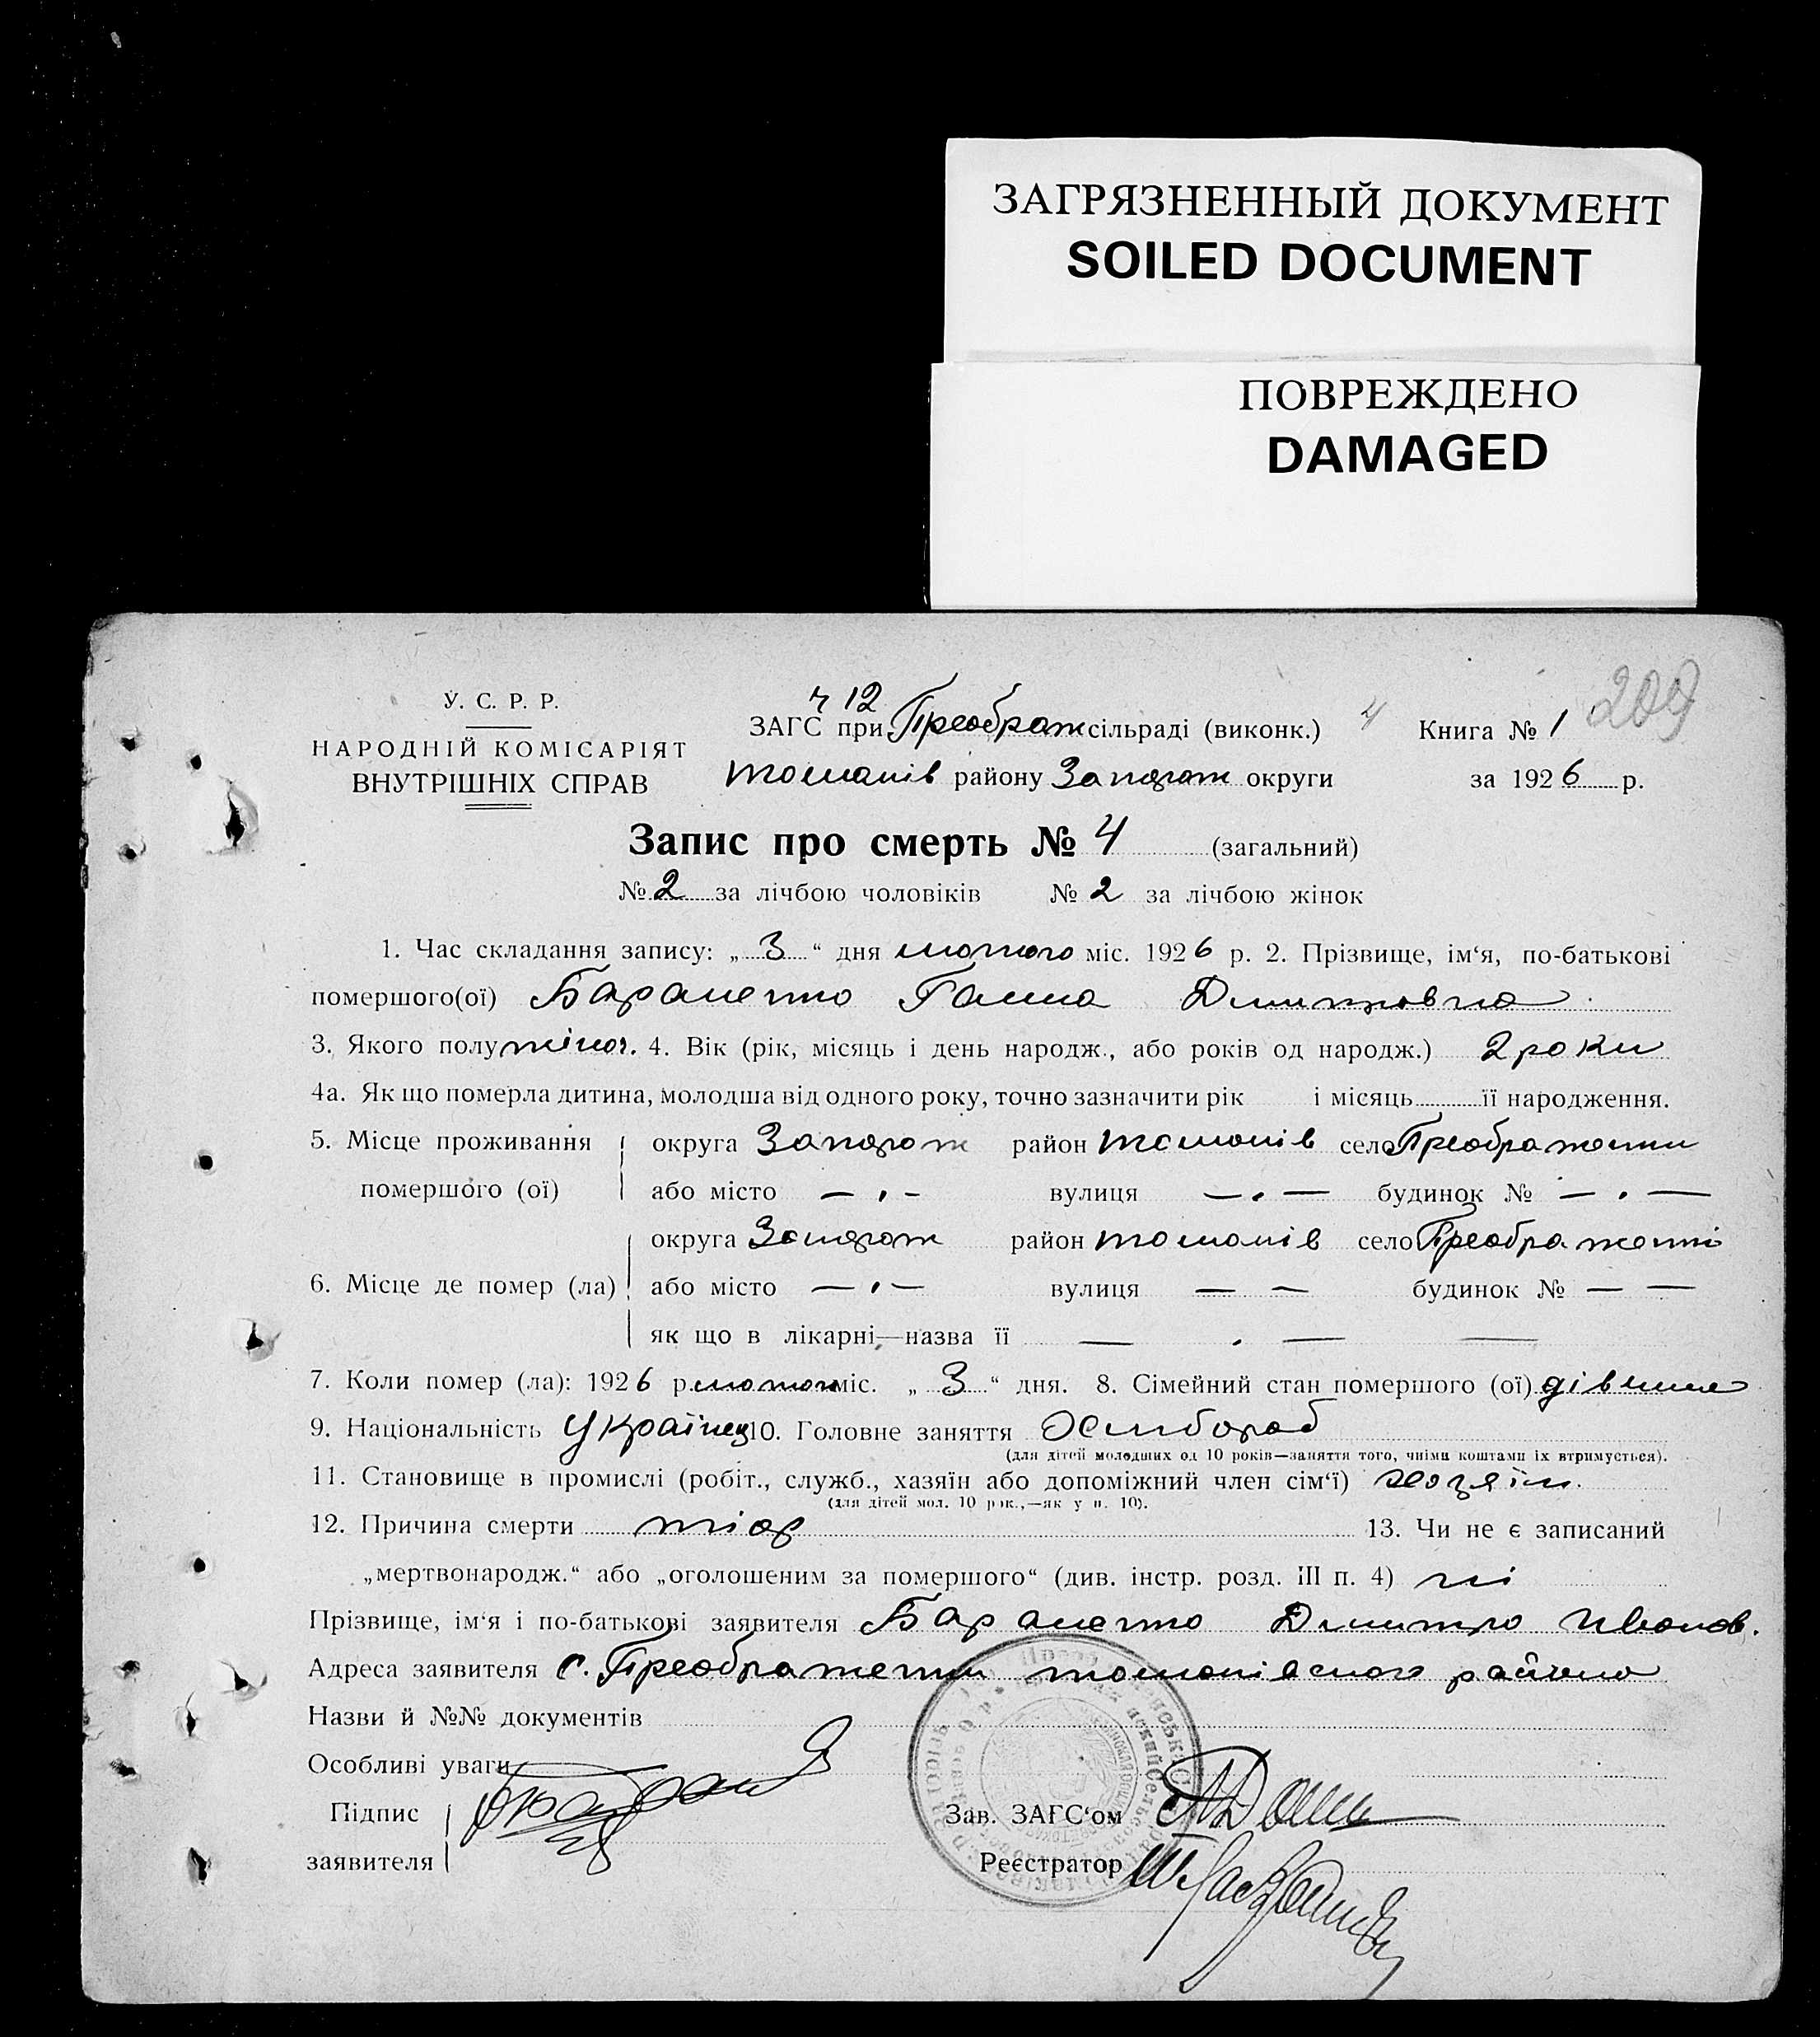 ЗАГРЯЗНЕННЫЙ ДОКУМЕНТ
SOILED DOCUMENT
ПОВРЕЖДЕНО
DAMAGED
209
У. С. Р. Р.
НАРОДНІЙ КОМІСАРІЯТ
ВНУТРІШНІХ СПРАВ
ч 12
ЗАГС при Преображ сільраді (виконк.) 4 Книга № 1
Томаків району Запорож округи за 1926 р.
Запис про смерть № 4 (загальний)
№ 2 за лічбою чоловіків № 2 за лічбою жінок
1. Час складання запису: „ 3 “ дня лютого міс. 1926 р. 2. Прізвище, ім‘я, по-батькові
помершого(ої) Ганна Дмитровна
3. Якого полу жіноч. 4. Вік (рік, місяць і день народж., або років од народж.) 2 роки
4а. Як що померла дитина, молодша від одного року, точно зазначити рік і місяць її народження.
5. Місце проживання округа Запорож район Томаків село Преображенки
помершого (ої) або місто — . - вулиця — . — будинок № — . —
округа Запорож район Томаків село Преображенкі
6. Місце де помер (ла) або місто — . — вулиця — — будинок № — —
як що в лікарні—назва її — . — —
7. Коли помер (ла): 1926 р. лютого міс. „ 3 “ дня. 8. Сімейний стан помершого (ої) дівчина
9. Національність Українец 10. Головне заняття Хлибороб
(для дітей молодших од 10 років—заняття того, чиїми коштами їх втримується).
11. Становище в промислі (робіт., служб., хазяїн або допоміжний член сім‘ї) хазяїн.
(для дітей мол. 10 рок.,—як у п. 10).
12. Причина смерти 13. Чи не є записаний
„мертвонародж.“ або „оголошеним за помершого“ (див. інстр. розд. III п. 4) ні
Прізвище, ім‘я і по-батькові заявителя Дмитро Иванов.
Адреса заявителя с. Преображенки Томаківского района
Назви й №№ документів
Особливі уваги
Підпис
заявителя
Зав. ЗАГС‘ом
Реєстратор